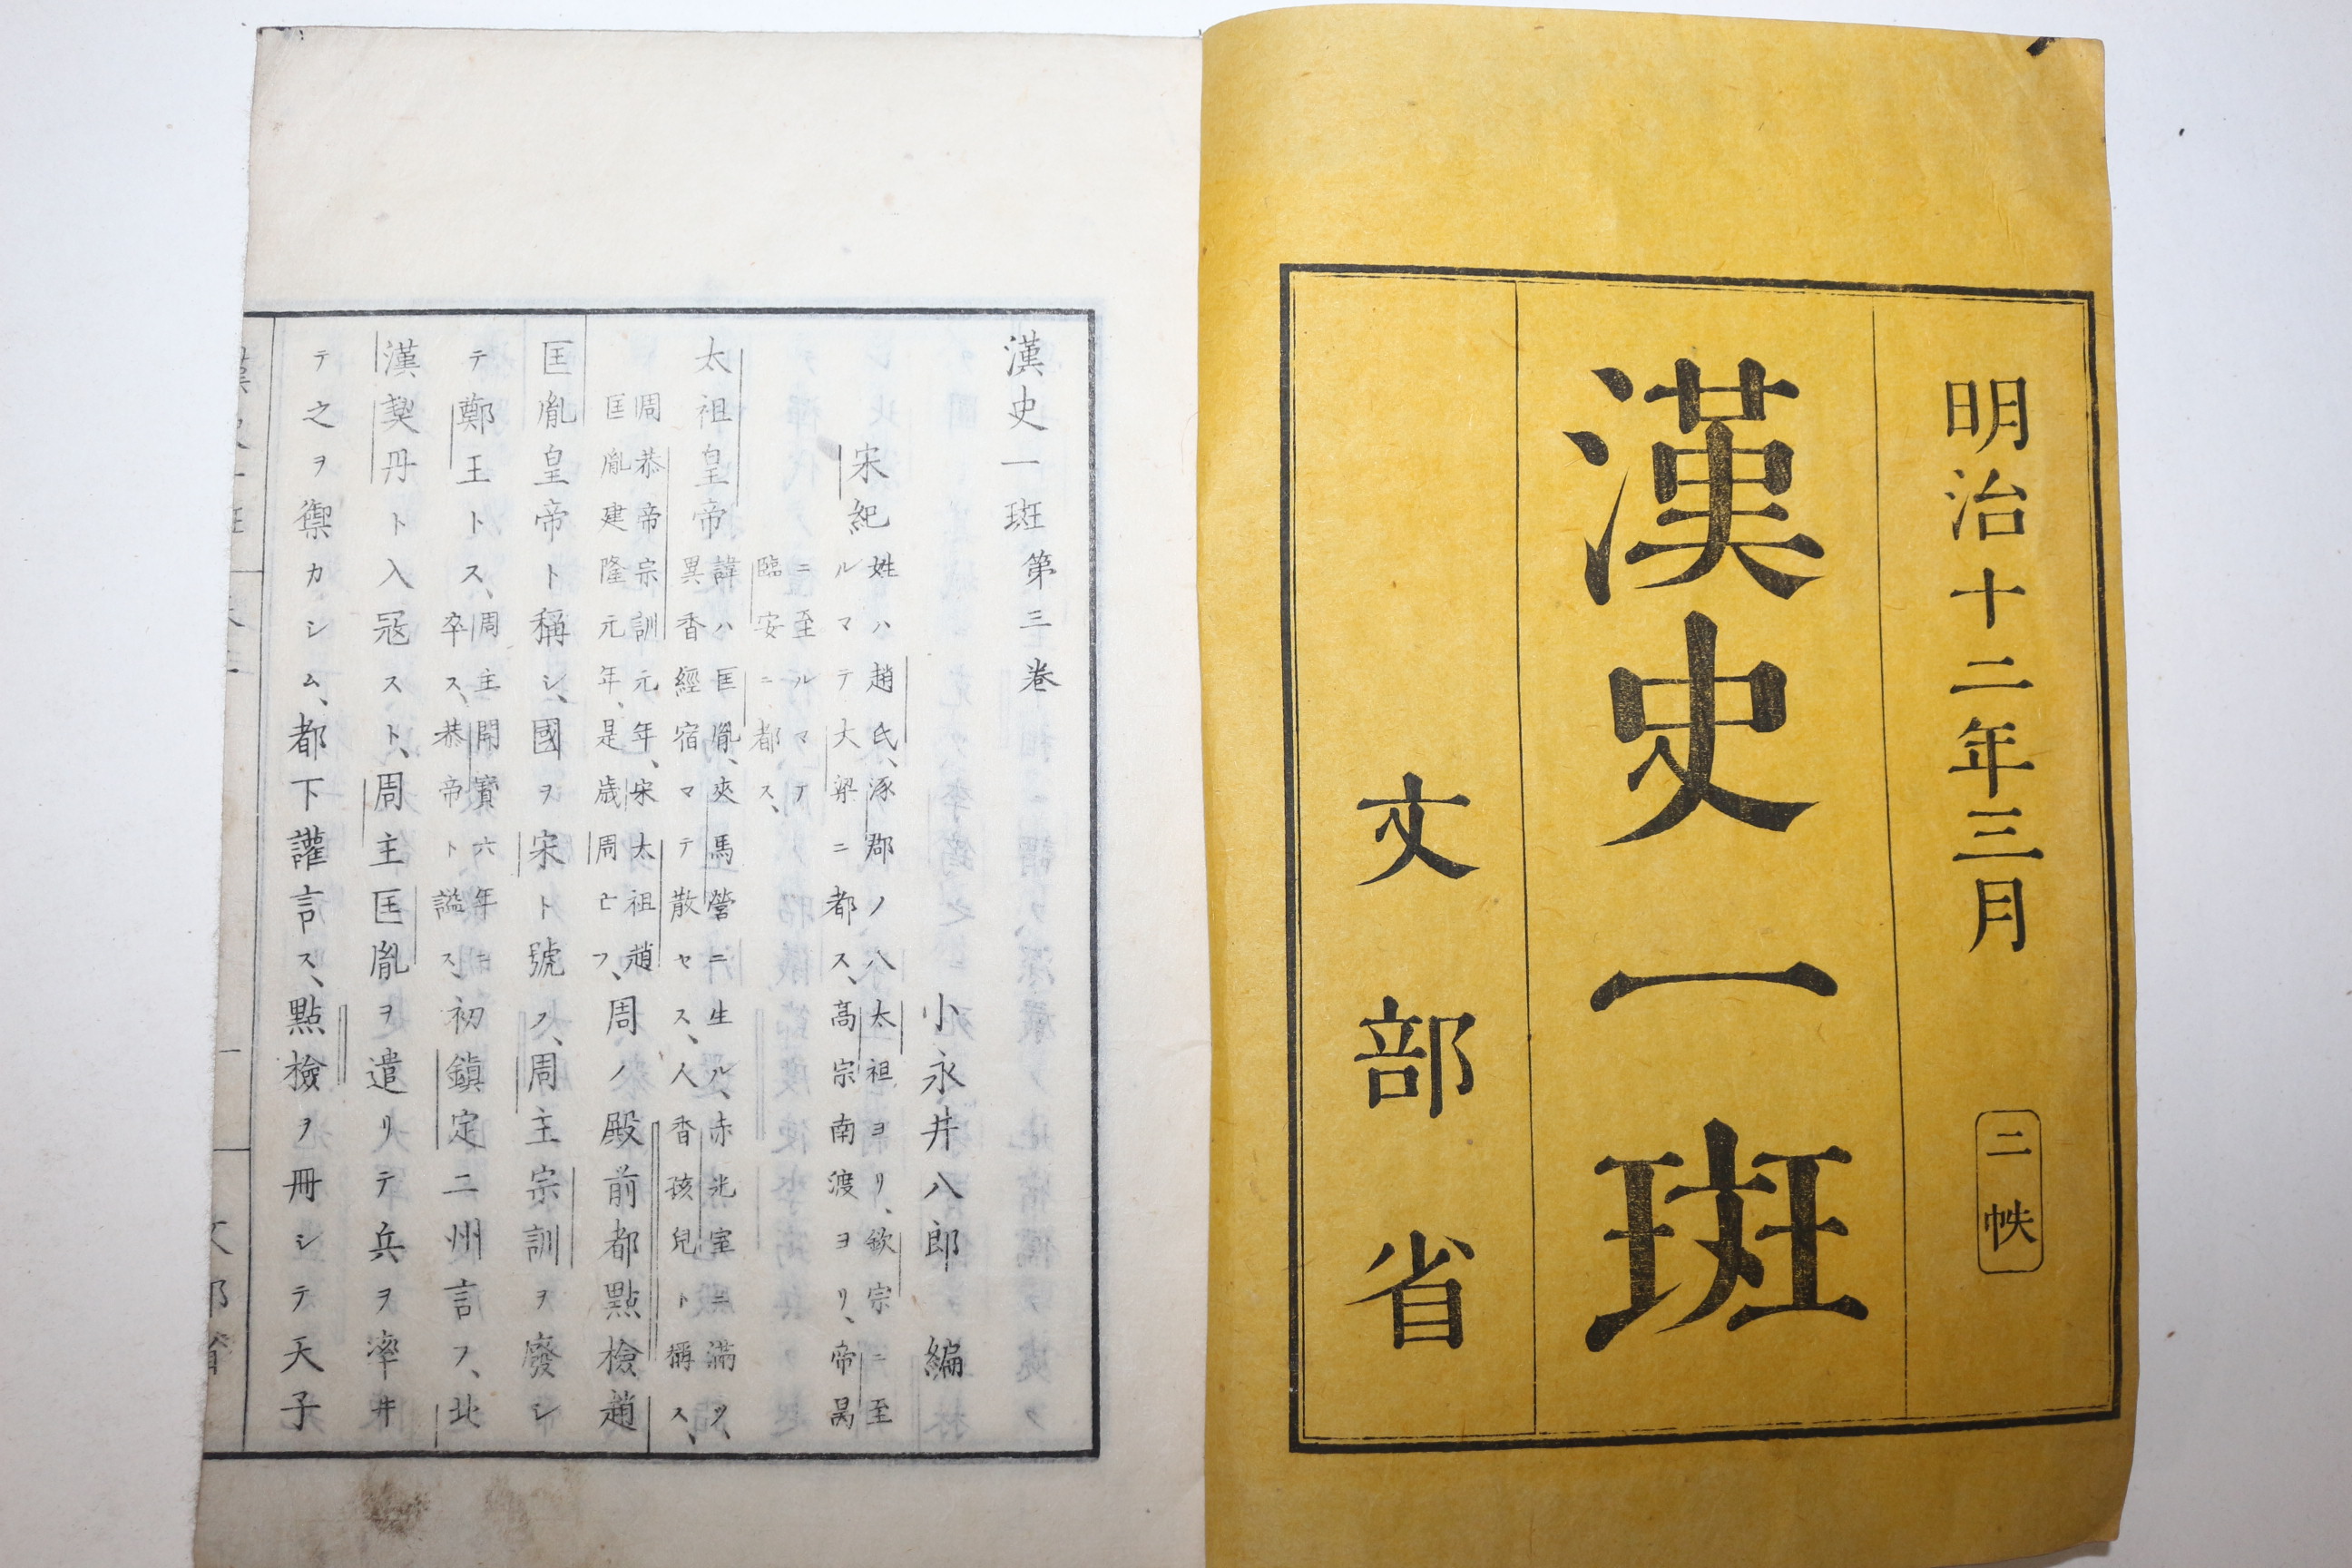 明治十二年三月
二帙
漢史一班
文部省
漢史一班第三卷
小永井八郎編
宋紀
姓ハ趙氏、涿郡ノ人太祖ヨリ、欽宗ニ至
ルマテ大梁ニ都ス、高宗南渡ヨリ、帝昺
ニ至ルマテ
臨安ニ都ス、
太祖皇帝
諱ハ匡胤、夾馬營ニ生ル、赤光室ニ滿ツ、
異香經宿マテ散セス、人香孩兒ト稱ス、
周恭帝宗訓元年、宋太祖趙
匡胤建隆元年、是歳周亡フ、
周ノ殿前都點檢趙
匡胤皇帝ト稱シ、國ヲ宋ト號ス、周主宗訓ヲ廢シ
テ鄭王トス、
周主開寶六年ニ
卒ス、恭帝ト謚ス、
初鎮定二州言フ、北
漢契丹ト入冦スト、周主匡胤ヲ遣リテ兵ヲ率井
テ之ヲ禦カシム、都下讙言ス、點檢ヲ冊シテ天子